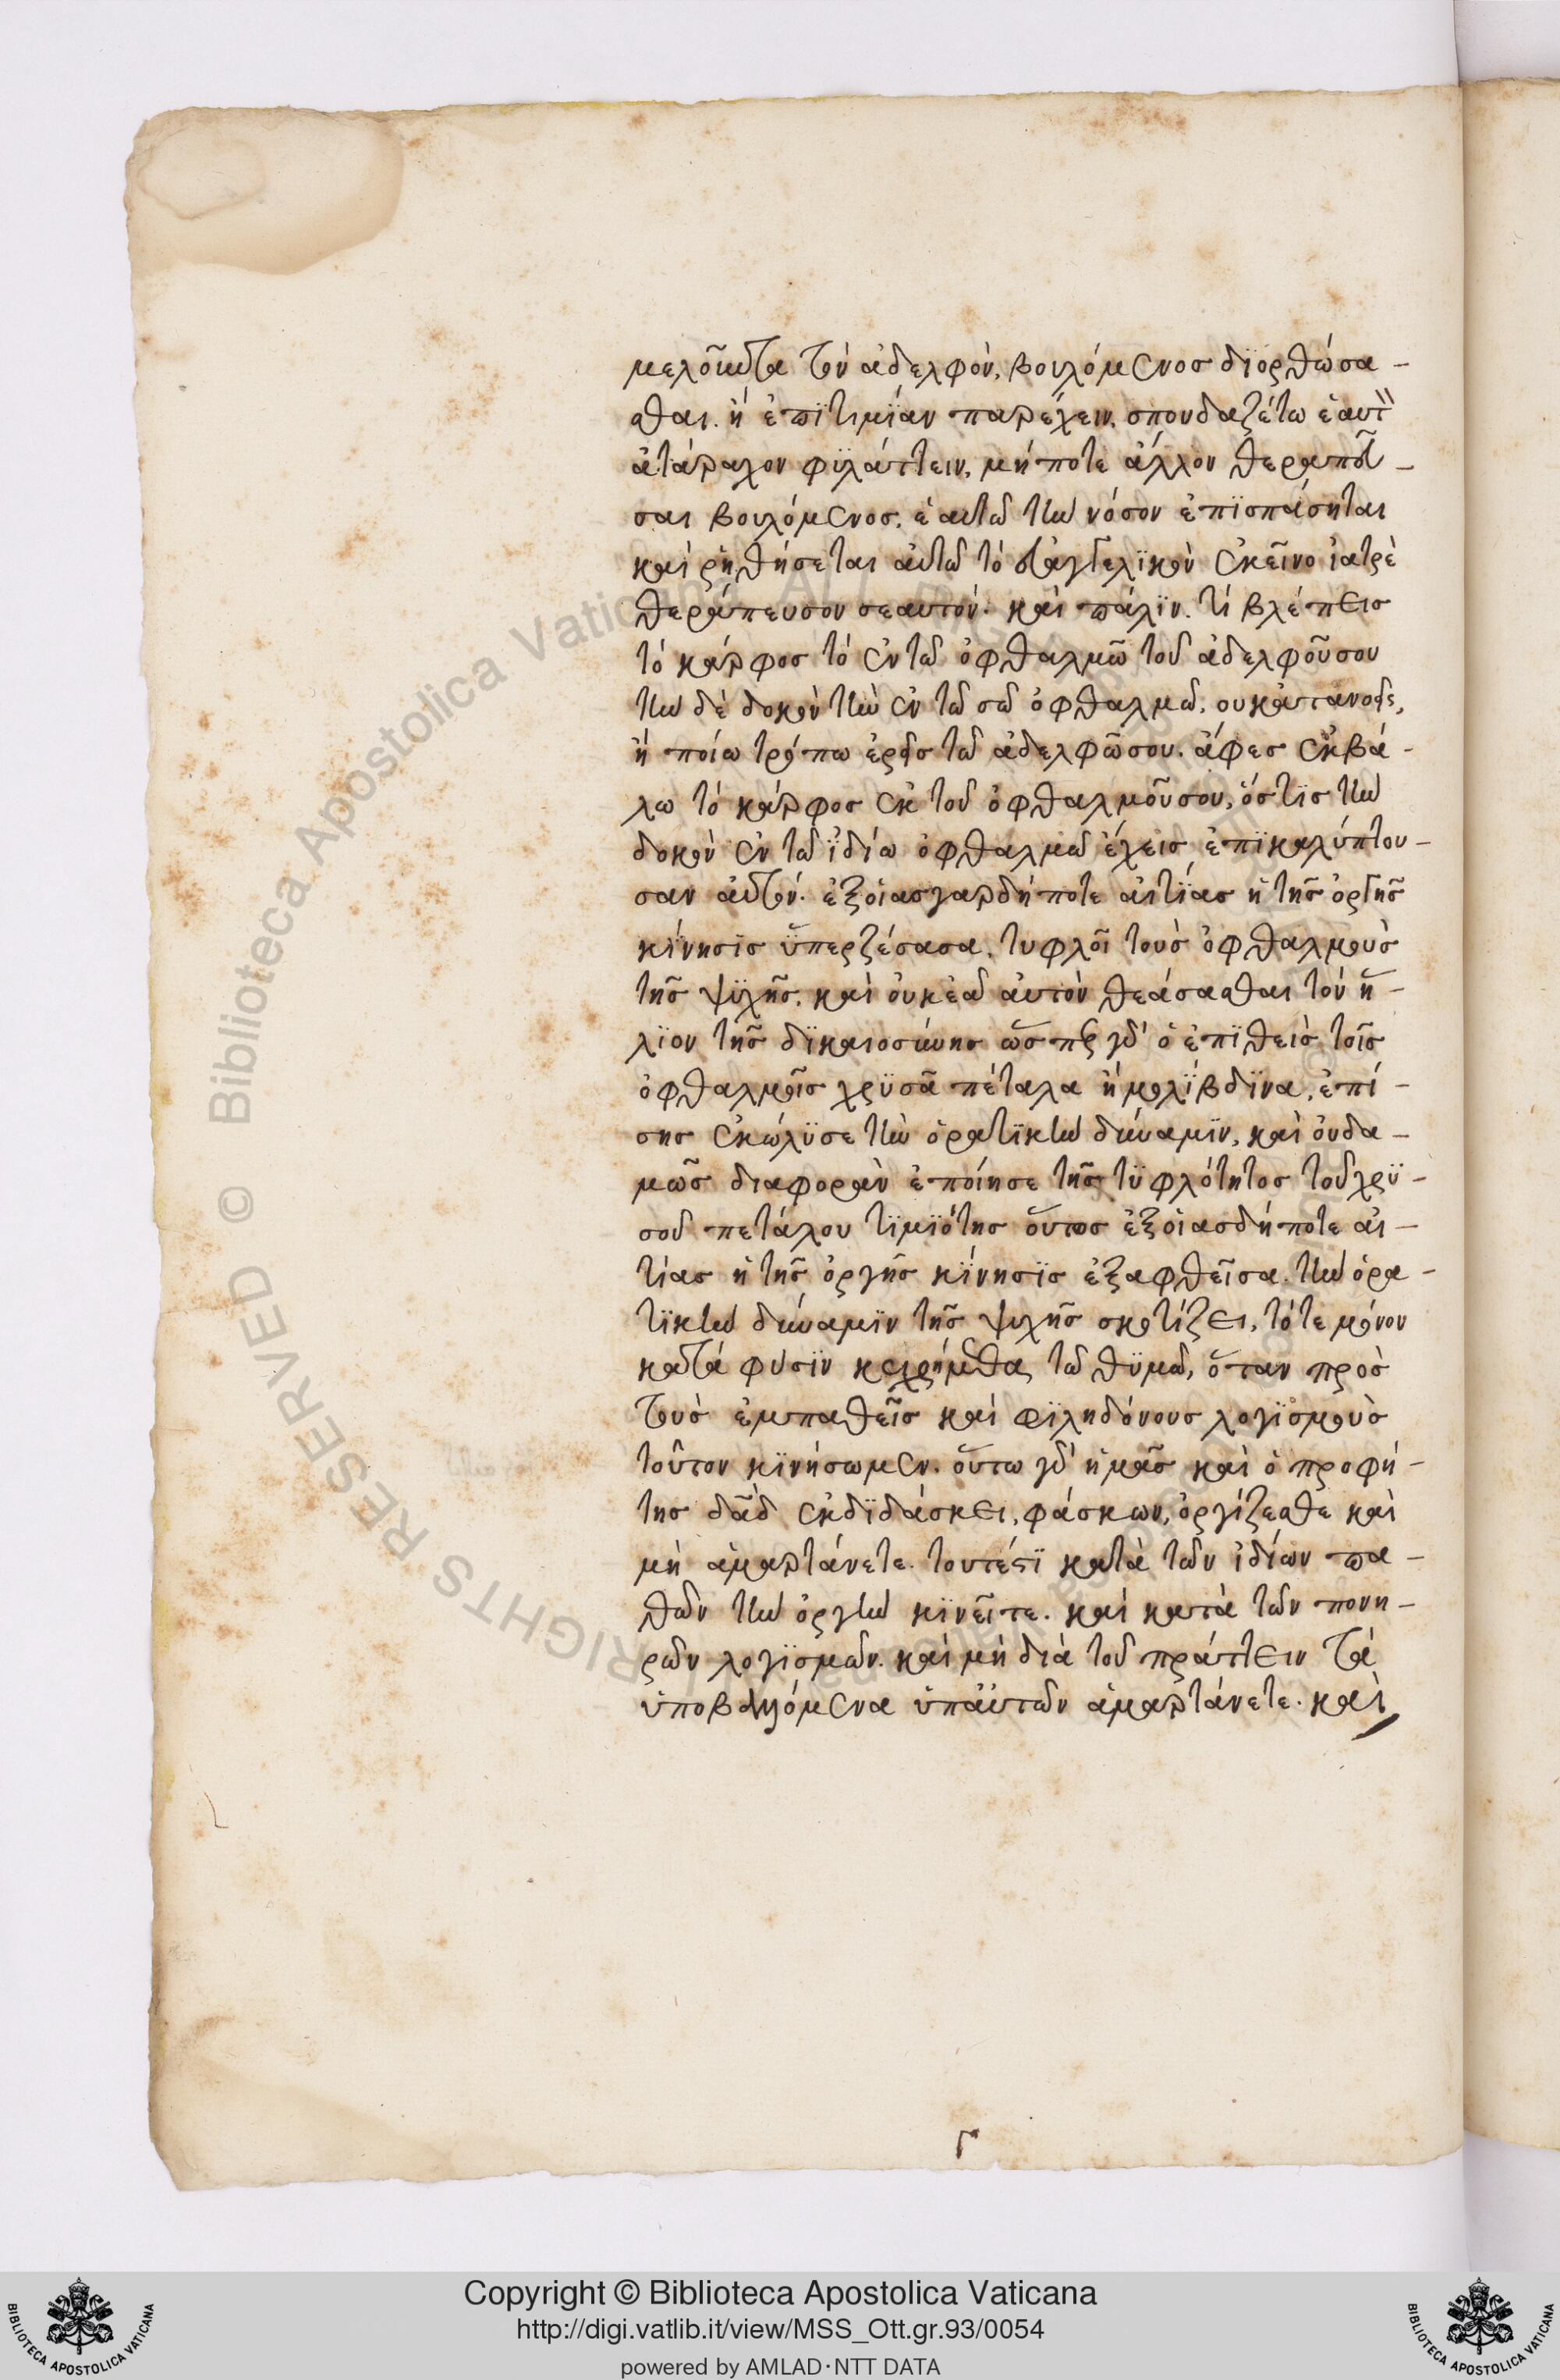 μελοῦντα τὸν ἀδελφὸν, βουλόμενος διορθώσα-
σθαι. ἢ ἐπϊτιμίαν παρέχειν, σπουδαζέτω ἑαυτ
ἀτάραχον φϋλάττειν, μήποτε ἄλλον θεραπεῦ-
σαι βουλόμενος, ἑαυτῶ τὴν νόσον ἐπϊσπάσηται
καὶ ῥηθήσεται αὐτῶ τὸ εὐαγγελϊκὸν ἐκεῖνο ἰατρὲ
θεράπευσον σεαυτόν. καὶ πάλϊν. τί βλέπεις
τὸ κάρφος τὸ ἐν τῶ ὀφθαλμῶ τοῦ ἀδελφοῦσου
τὴν δὲ δοκὸν τὴν ἐν τῶ σῶ ὀφθαλμῶ, ουκατανοεῖς,
ἢ ποίω τρόπω ἐρεῖς τῶ ἀδελφῶσου. ἄφες ἐκβά-
λω τὸ κάρφος ἐκ τοῦ ὀφθαλμοῦσου, ὅστϊς τὴν
δοκὸν ἐν τῶ ϊδίω ὀφθαλμῶ ἔχεις ἐπϊκαλύπτου-
σαν αὐτόν. ἐξοἱασγαρδήποτε αἰτΐας ἡ τῆς ὀργῆς
κίνησϊς ὑπερζέσασα, τυφλοῖ τοὺς ὀφθαλμοὺς
τῆς ψϋχῆς. καὶ οὐκεᾶ αὐτὸν θεάσασθαι τὸν ἥ-
λϊον τῆς δϊκαιοσύνης ὥσπερ γὰρ ὁ ἐπϊθεὶς τοῖς
ὀφθαλμοῖς χρϋσᾶ πέταλα ἢ μολΐβδϊνα, ἐπί-
σης ἐκώλϋσε τὴν ὁρατϊκὴν δύναμϊν, καὶ οὐδα-
μῶς διαφορὰν ἐποίησε τῆς τϋφλότητος τοῦ χρϋ-
σοῦ πετάλου τϊμϊότης οὕτως ἐξοἱασδήποτε αἰ-
τίας ἡ τῆς ὀργῆς κΐνησϊς ἐξαφθεῖσα. τὴν ὁρα-
τϊκὴν δύναμϊν τῆς ψυχῆς σκοτίζει, τότε μόνον
κατὰ φύσϊν κεχρήμεθα τῶ θϋμῶ, ὅταν πρὸς
τοὺς ἐμπαθεῖς καὶ φϊληδόνους λογϊσμοὺς
τοῦτον κϊνήσωμεν. οὕτω γὰρ ἡμᾶς καὶ ὁ προφή-
της δᾶδ ἐκδϊδάσκει, φάσκων, ὀργίζεσθε καὶ
μὴ ἁμαρτάνετε. τουτέστϊ κατὰ τῶν ἰδίων πα-
θῶν τὴν ὀργὴν κϊνεῖτε. καὶ κατὰ τῶν πονη-
ρῶν λογϊσμῶν. καὶ μὴ διὰ τοῦ πράττειν τὰ
ὑποβαλλόμενα ὑπ αὐτῶν ἁμαρτάνετε. καὶ
Copyright © Biblioteca Apostolica Vaticana
http://digi.vatlib.it/view/MSS_Ott.gr.93/0054
powered by AMLAD·NTT DATA
BIBLIOTECA APOSTOLICA VATICANA
BIBLIOTECA APOSTOLICA VATICANA